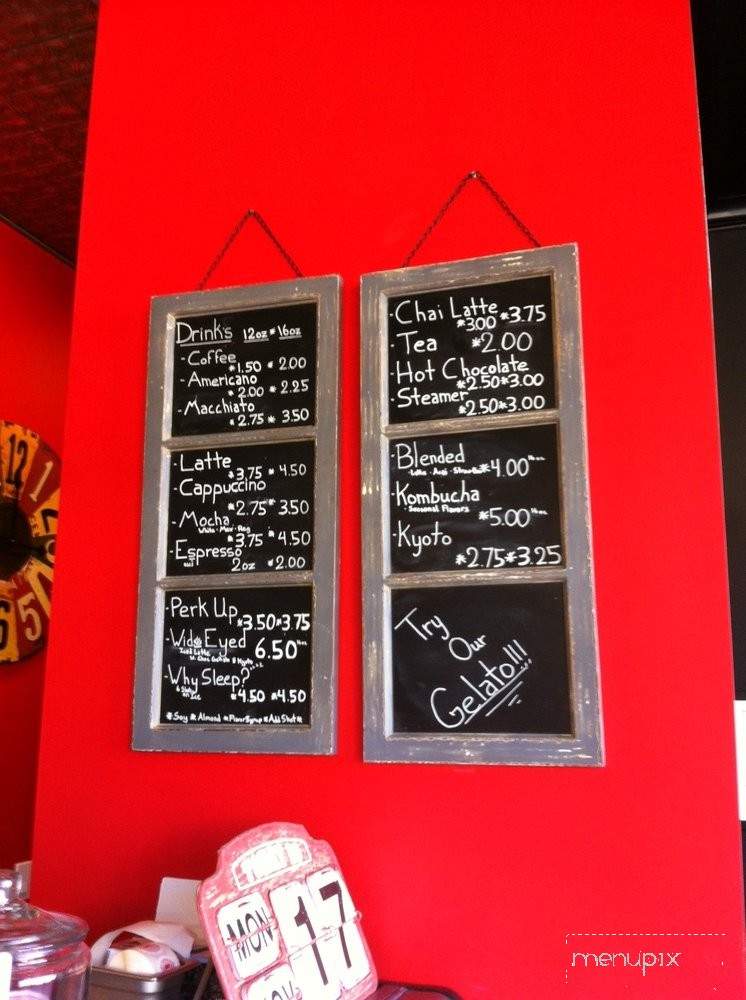 Drink's 12oz * 16oz
- Coffee
* 1.50 * 2.00
- Americano
* 2.00 * 2.25
- Macchiato
* 2.75 * 3.50
- Latte
* 3.75 * 4.50
- Cappuccino
* 2.75 * 3.50
- Mocha
* 3.75 * 4.50
- Espresso
2oz * 2.00
- Perk Up
* 3.50 * 3.75
- Wide Eyed 6.50
Iced Latte
- Why Sleep?
* 4.50 * 4.50
* Soy * Almond * Flavor Syrup * Add Shot *
- Chai Latte
* 300 * 3.75
- Tea * 2.00
- Hot Chocolate
* 2.50 * 3.00
- Steamer
* 2.50 * 3.00
- Blended
* 4.00
- Kombucha
- Seasonal Flavors
* 5.00
- Kyoto
* 2.75 * 3.25
Try
Our
Gelato!!!
12
1
2
5
6
MON 17
NOV
menupix